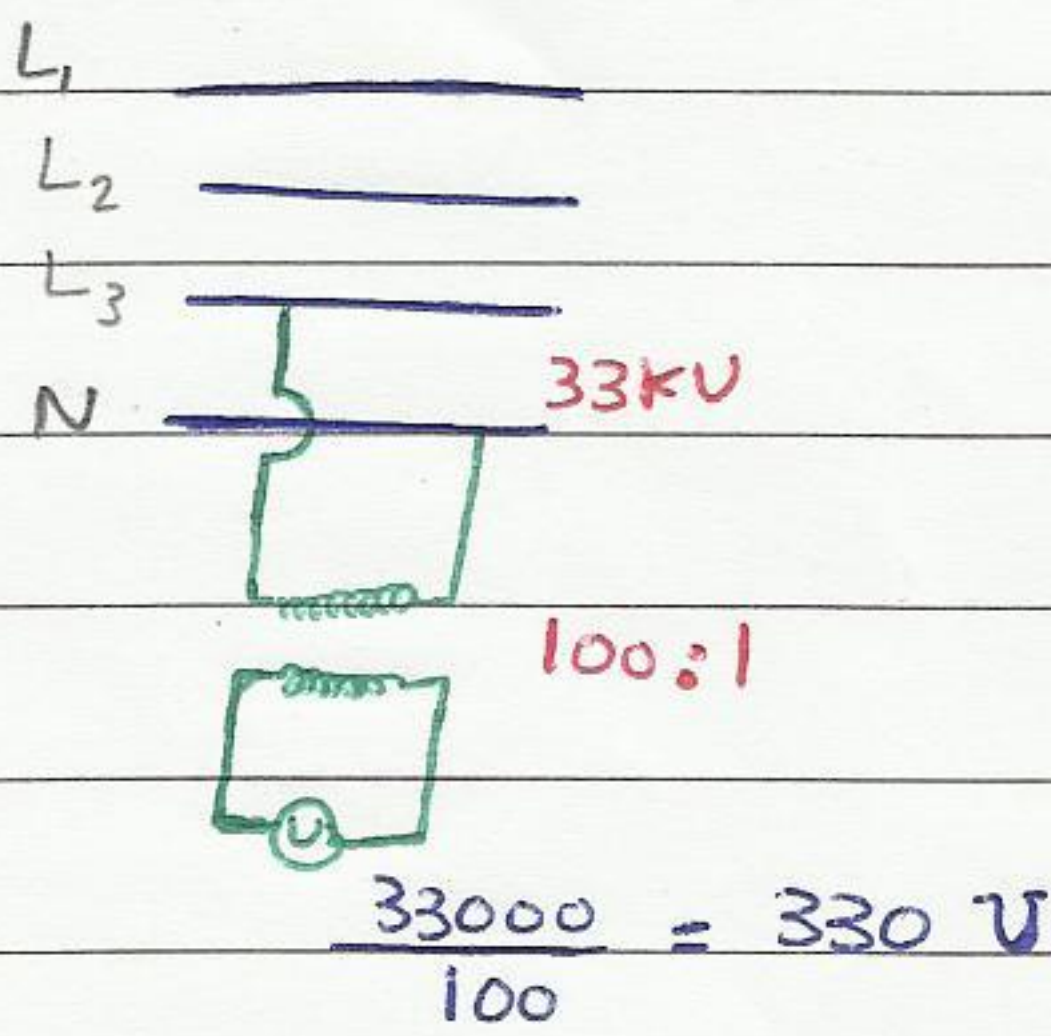 L₁
L₂
L₃
N 33KV
100:1
V
33000 = 330 V
100